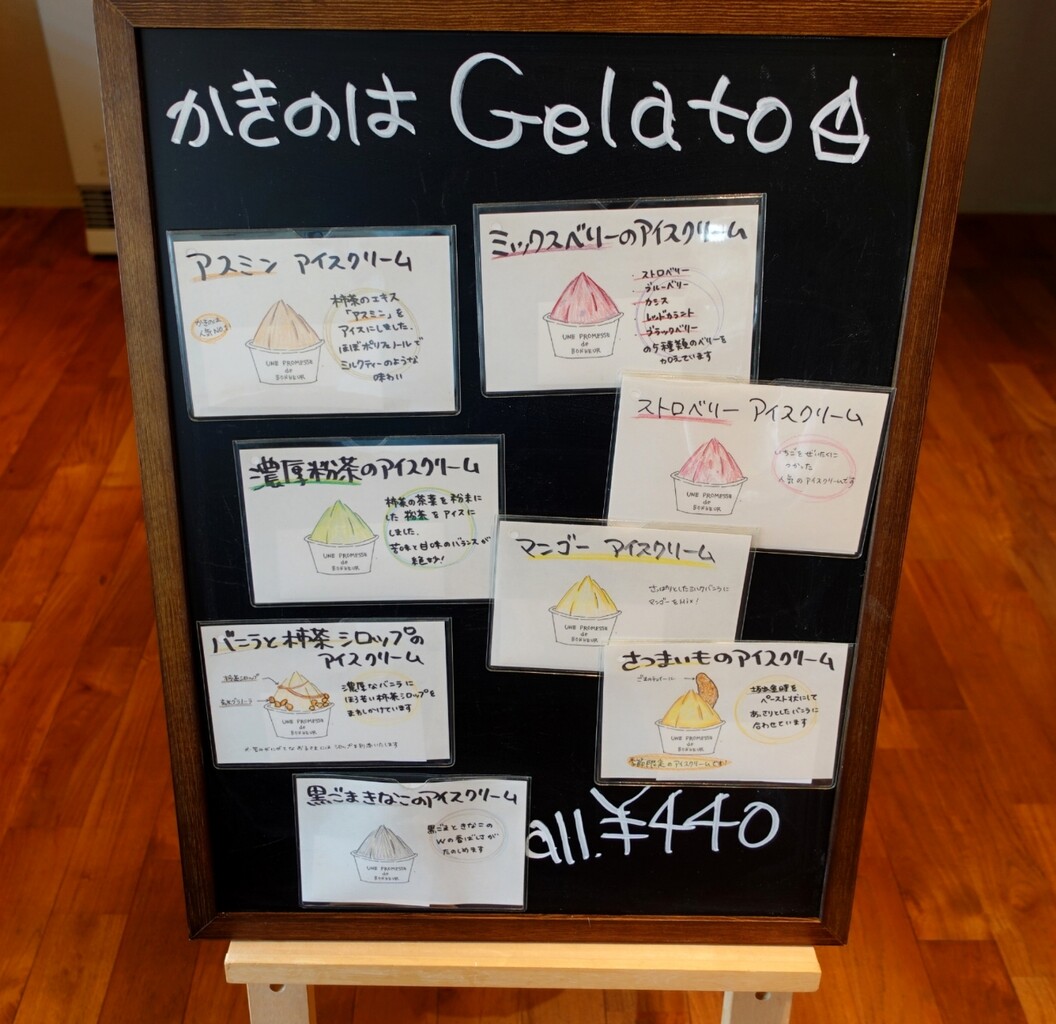 かきのは Gelato
アスミン アイスクリーム
かきのは
人気No.1!
柿葉のエキス
「アスミン」を
アイスにしました。
ほぼポリフェノールで
ミルクティーのような
味わい
UNE PROMESSE
de
BONHEUR
ミックスベリーのアイスクリーム
・ストロベリー
・ブルーベリー
・カシス
・レッドカラント
・ブラックベリー
の5種類のベリーを
加えています
UNE PROMESSE
de
BONHEUR
ストロベリー アイスクリーム
いちごをぜいたくに
つかった
人気のアイスクリームです
UNE PROMESSE
de
BONHEUR
濃厚粉茶のアイスクリーム
柿葉の茶葉を粉末に
した粉茶をアイスに
しました。
苦味と甘味のバランスが
絶妙!
UNE PROMESSE
de
BONHEUR
マンゴー アイスクリーム
さっぱりとしたミルクバニラに
マンゴーをMix!
UNE PROMESSE
de
BONHEUR
バニラと柿茶シロップの
アイスクリーム
柿茶シロップ
濃厚なバニラに
ほろ苦い柿茶シロップを
まわしかけています
UNE PROMESSE
de
BONHEUR
さつまいものアイスクリーム
ペースト状にして
あっさりとしたバニラに
合わせています
UNE PROMESSE
de
BONHEUR
限定のアイスクリームです!
黒ごまきなこのアイスクリーム
黒ごまときなこの
Wの香ばしさが
たのしめます
UNE PROMESSE
de
BONHEUR
all.¥440